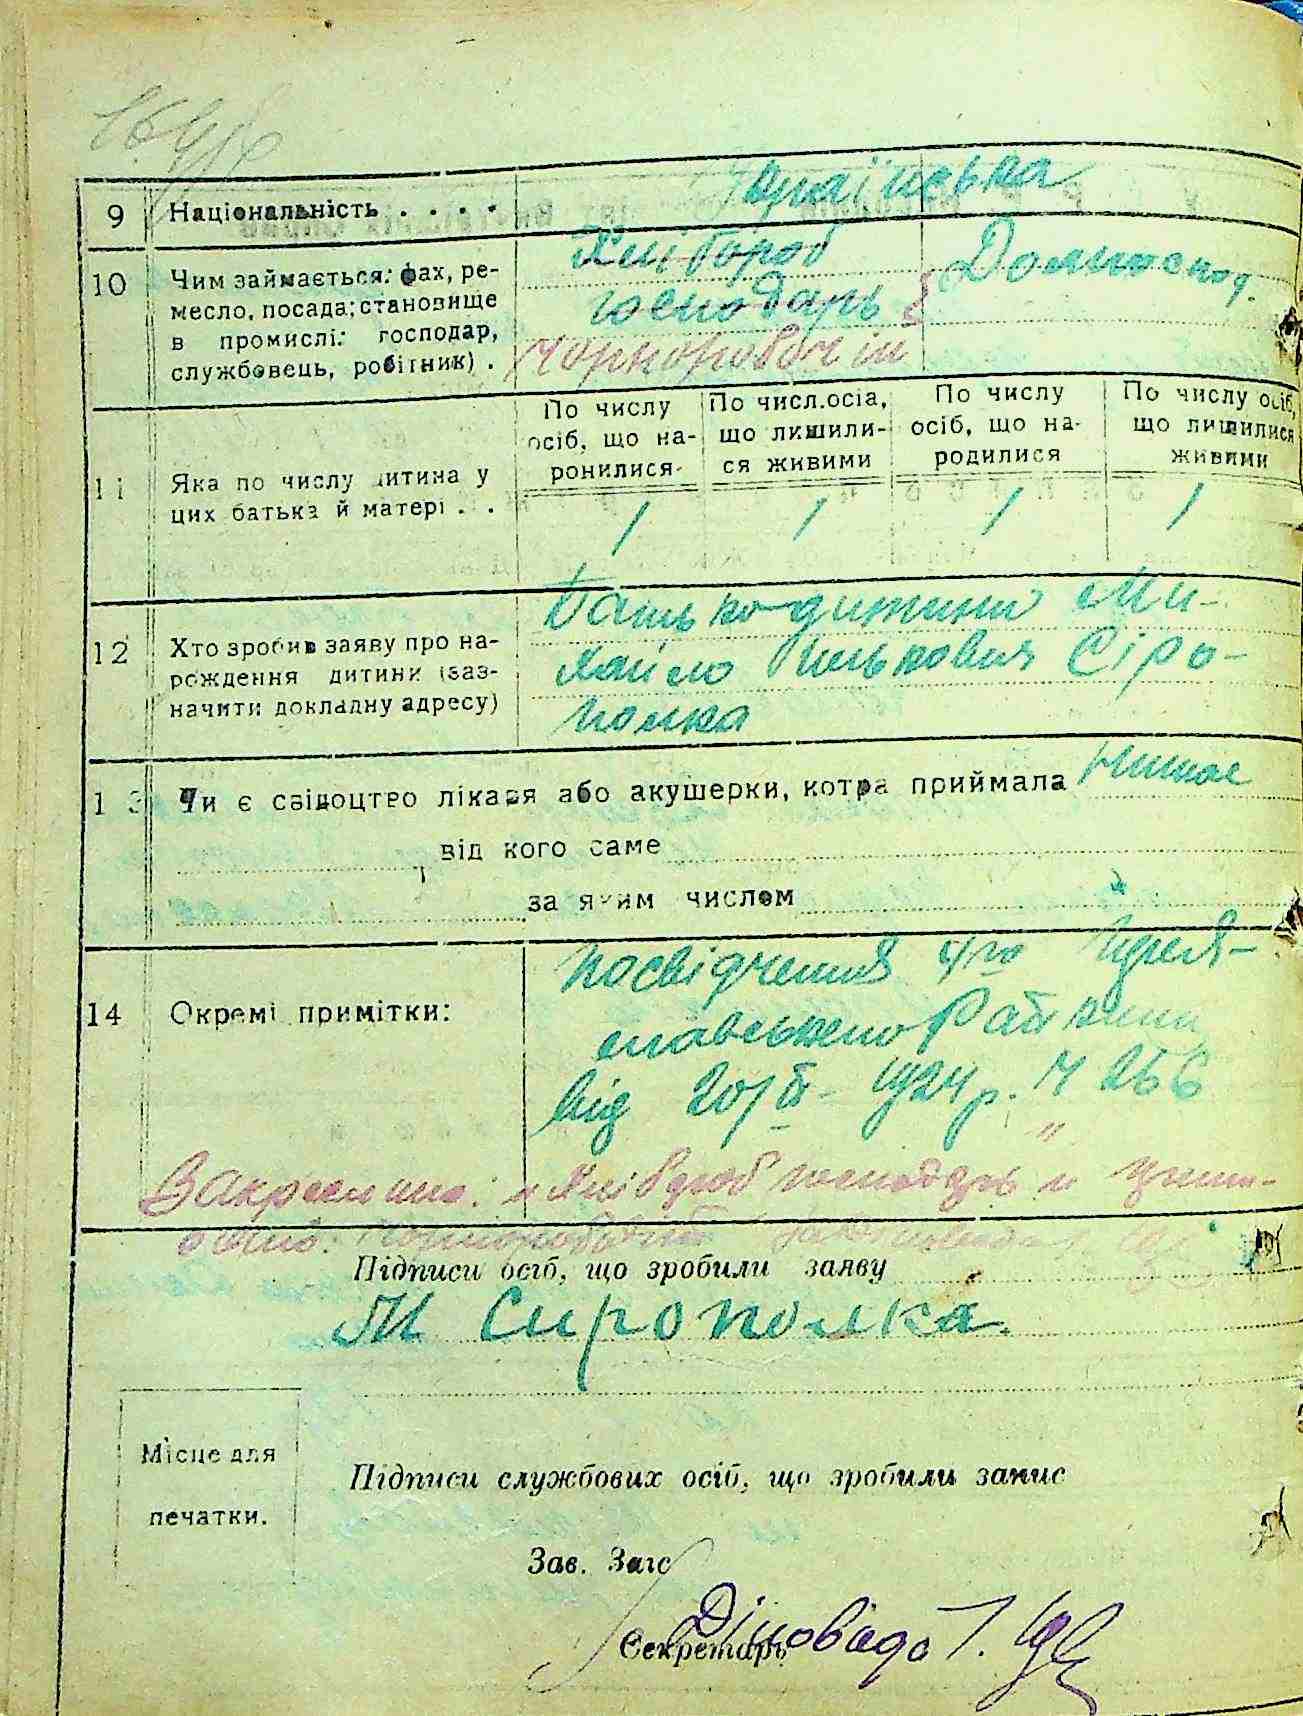 9 Національність . . . . Українська
10 Чим займається: фах, ре-
месло, посада; становище
в промислі: господар,
службовець, робітник) .
Хлібороб
господарь
Чорноробочій
Домгоспод.
11 Яка по числу дитина у
цих батька й матері . .
По числу
осіб, що на-
ронилися
По числ.осіа,
що лишили-
ся живими
По числу
осіб, що на-
родилися
По числу осіб,
що лишилися
живими
1 1 1 1
12 Хто зробив заяву про на-
рождення дитини (заз-
начити докладну адресу)
Батько дитини Ми-
хайло Сіро-
полка
13 Чи є свідоцтво лікаря або акушерки, котра приймала немає
від кого саме
за яким числом
14 Окремі примітки:
посвідчення
від 20/ 1924 р. Ч 266
Закреслино: "Хлібороб господарь"
Підписи осіб, що зробили заяву
М Сирополка.
Місце для
печатки.
Підписи службових осіб, що зробили запис
Зав. Загс
Секретарь